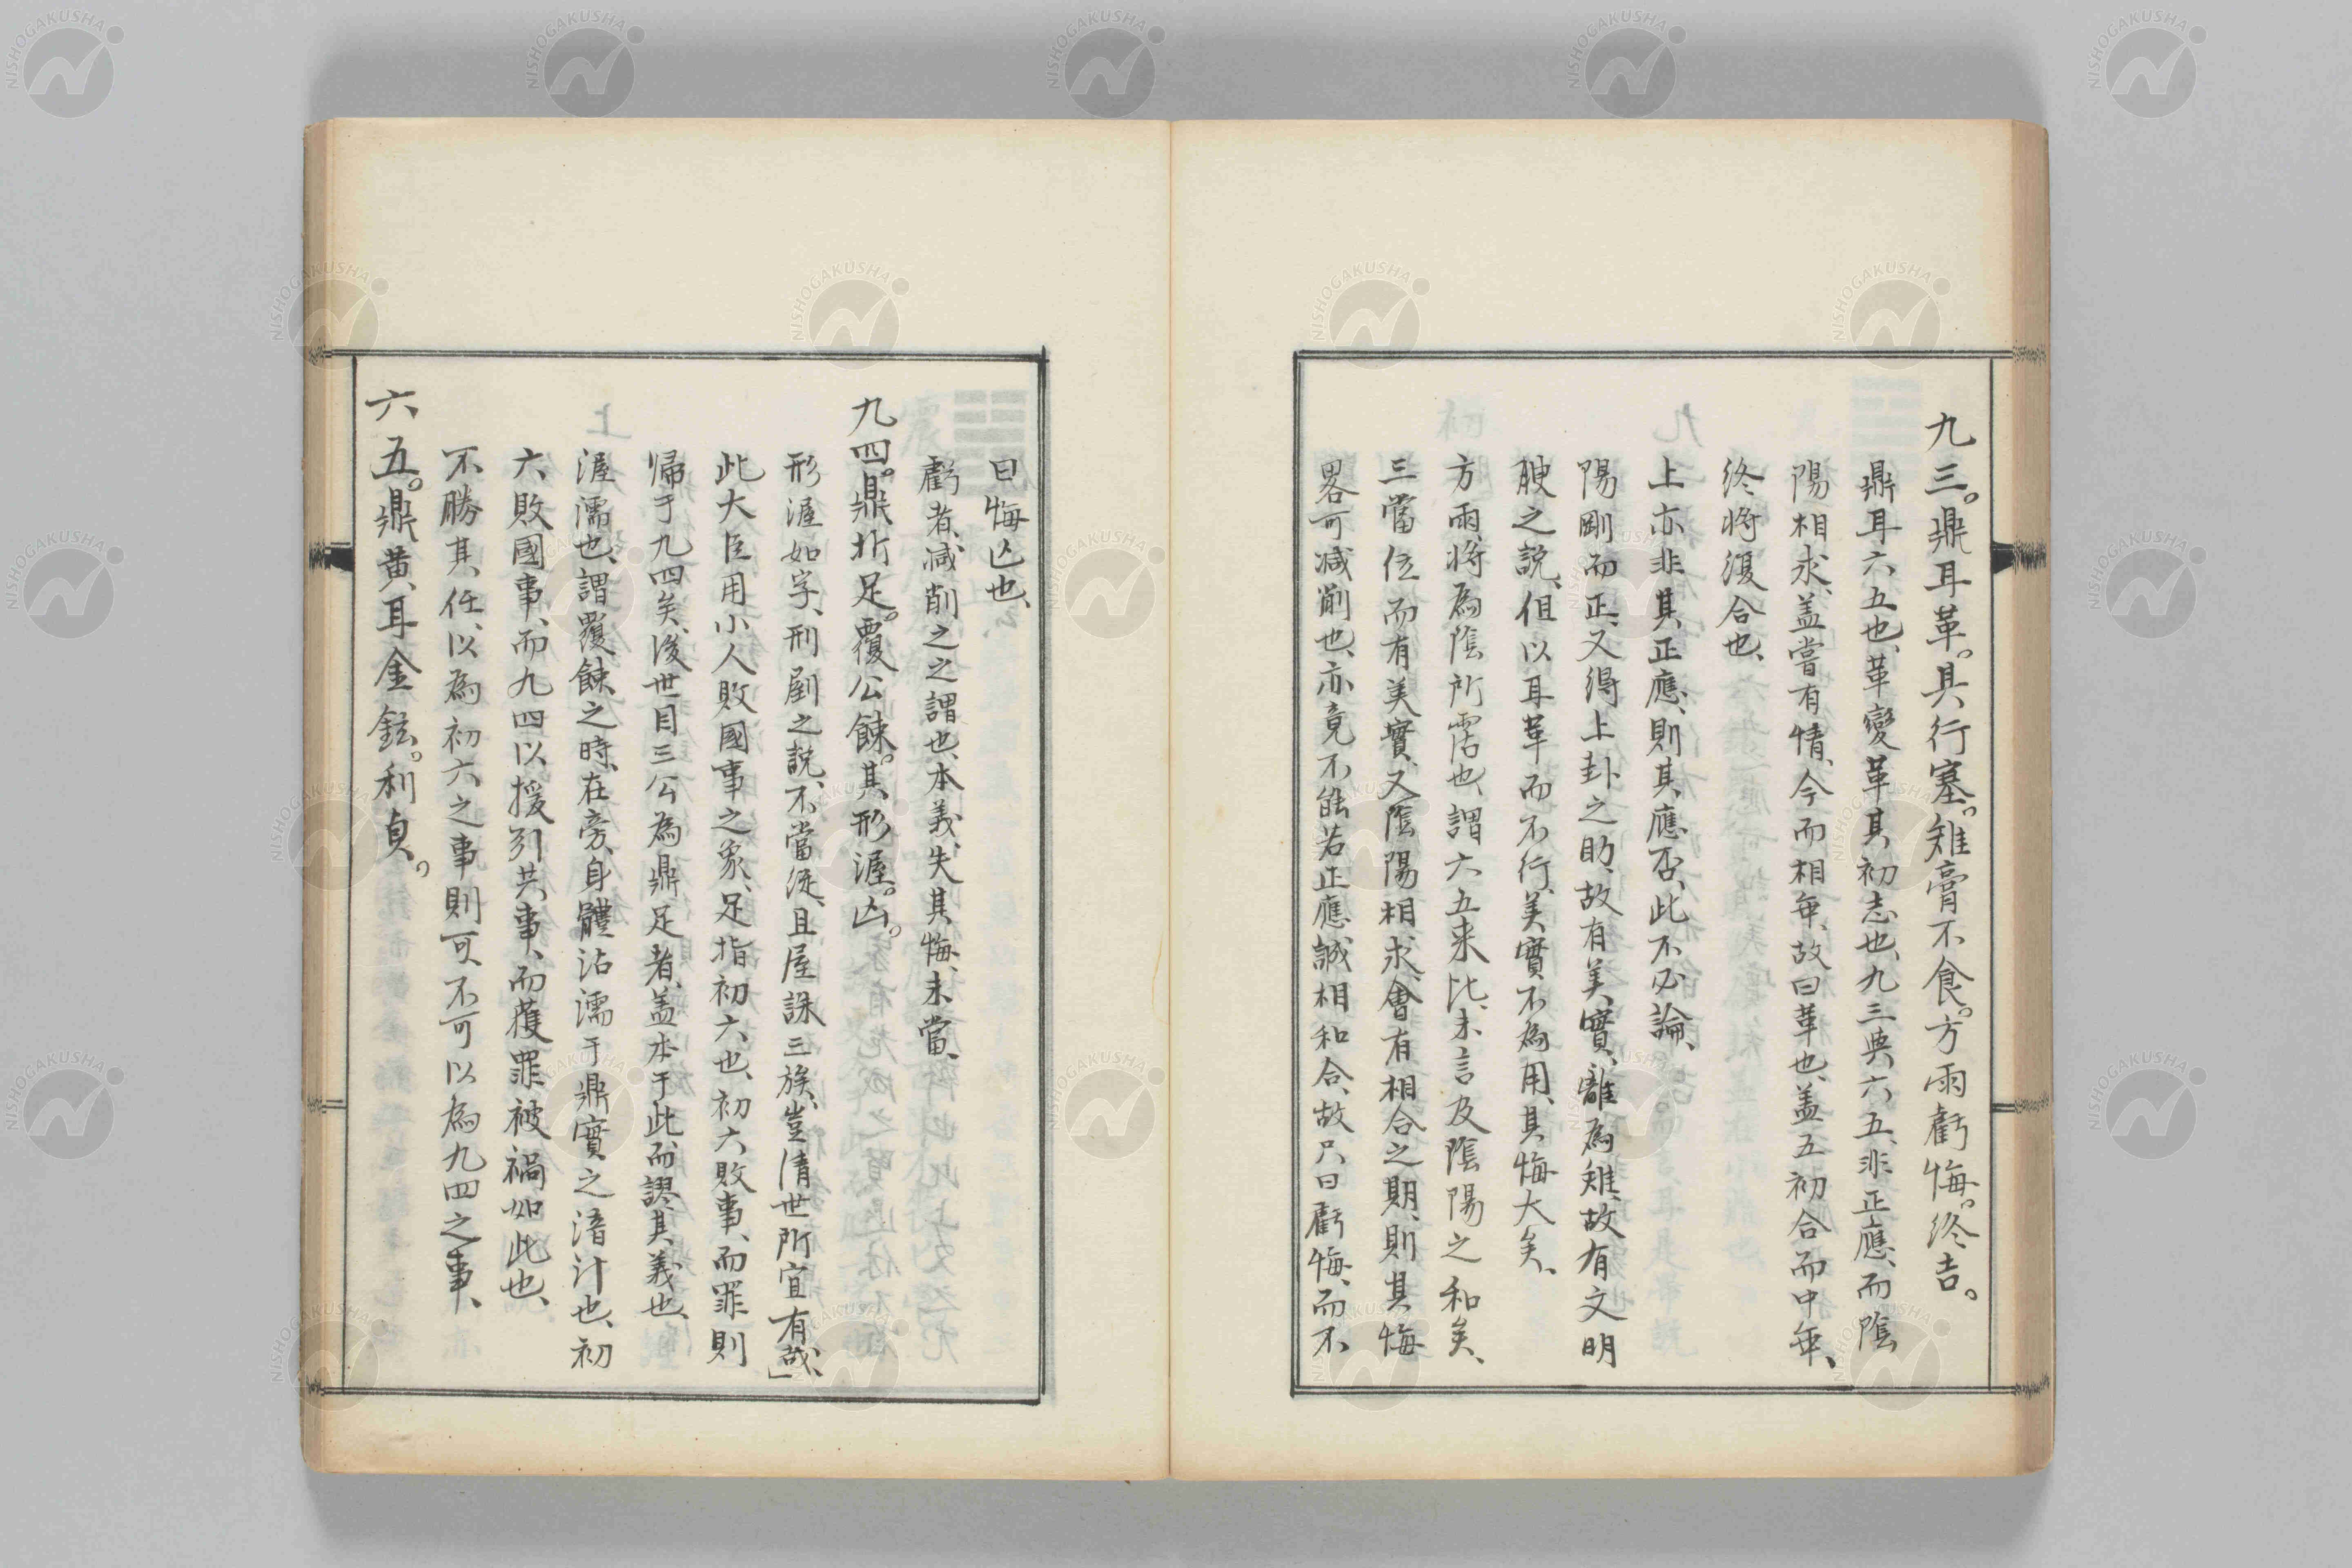 九三。鼎耳革。其行塞。雉膏不食。方雨虧悔。終吉。
鼎耳六五也、革變革其初志也、九三與六五、非正應、而陰
陽相求、盖嘗有情、今而相乖、故曰革也、盖五初合而中乖、
終將復合也、
上亦非其正應、則其應否、此不必論、
陽剛而正、又得上卦之助、故有美實、離為雉、故有文明
腴之説、但以耳革而不行、美實不為用、其悔大矣、
方雨、將為陰所霑也、謂六五来比、未言及陰陽之和矣、
三當位而有美實、又陰陽相求、會有相合之期、則其悔
畧可减削也、亦竟不能若正應誠相和合、故只曰虧悔、而不
曰悔亡也、
虧者、减削之之謂也、本義、失其悔、未當、
九四。鼎折足。覆公餗。其形渥。凶。
形渥如字、刑剭之説、不當從、且屋誅三族、豈清世所宜有哉、」
此大臣用小人敗國事之象、足指初六也、初六敗事、而罪則
帰于九四矣、後世目三公為鼎足者、盖本于此、而謬其義也、
渥濡也、謂覆餗之時、在旁、身體沾濡于鼎實之湆汁也、初
六敗國事、而九四以援引共事、而蒦罪被禍如此也、
不勝其任、以為初六之事則可、不可以為九四之事、
六五。鼎黄耳金鉉。利貞。
NISHOGAKUSHA